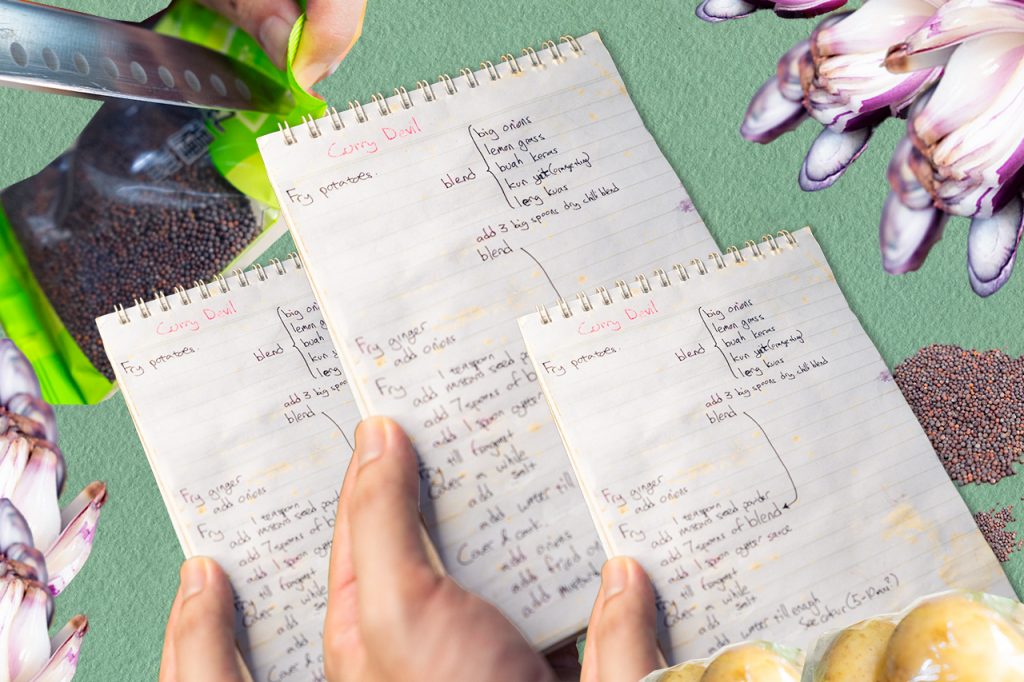 Curry Devil
Fry potatoes.
blend
big onions
lemon grass
buah keras
kun yet (orange dug)
leng kuas
add 3 big spoons dry chilli blend
blend
Fry ginger
add onions
Fry add 1 teaspoon
mustard seed p
add 7 spoons of b
add 1 spoon oyster
Fry till fragrant
Cover a while
add salt
add water till
Cover & cook
add onions
add fried
Curry Devil
Fry potatoes.
blend
big onions
lemon g
buah k
kun
leng
add 3 big spo
blend
Fry ginger
add onions
Fry add 1 teaspoon
mustard seed powder
add 7 spoons of b
add 1 spoon oyster
Fry till fragrant
Cover a while
add salt
add water till
Cover & c
Curry Devil
Fry potatoes.
blend
big onions
lemon grass
buah keras
kun yet (orange dug)
leng kuas
add 3 big spoons dry chilli blend
blend
Fry ginger
add onions
Fry add 1 teaspoon
mustard seed powder
add 7 spoons of blend
add 1 spoon oyster sauce
Fry till fragrant
Cover a while
add salt
add water till enough
(5-10